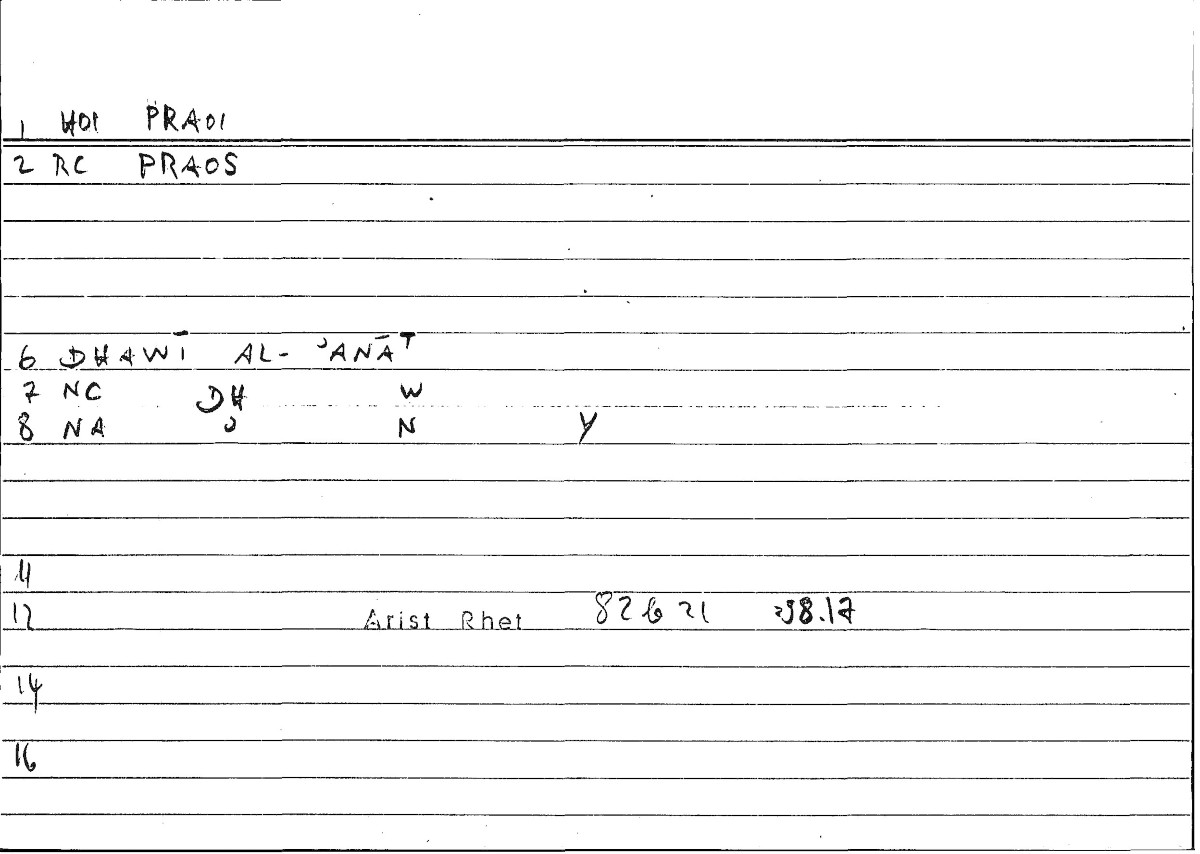 1 HOI PRAOI
2 RC PRAOS
6 DHAWĪ AL- ʾANĀT
7 NC DH W
8 NA ʾ N Y
11
12 Arist Rhet 82b21
14
16